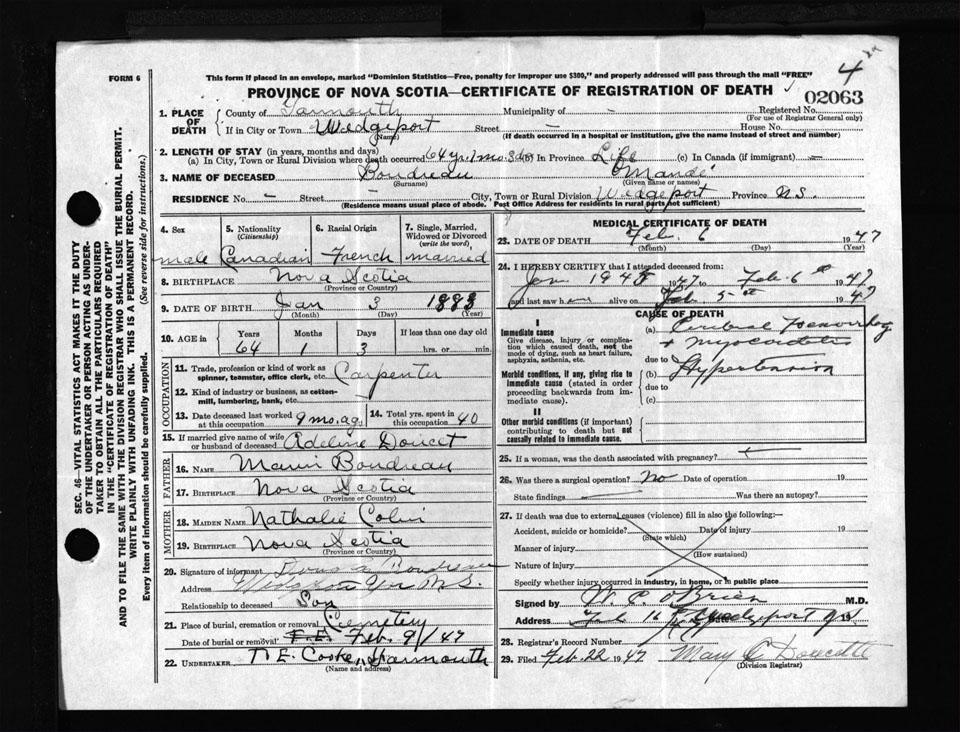 4
FORM 6
This form if placed in an envelope, marked "Dominion Statistics—Free, penalty for improper use $300," and properly addressed will pass through the mail "FREE"
PROVINCE OF NOVA SCOTIA—CERTIFICATE OF REGISTRATION OF DEATH
02063
1. PLACE OF DEATH
County of Yarmouth Municipality of - Registered No.
(For use of Registrar General only)
If in City or Town Wedgeport Street — House No.
(Name) (If death occurred in a hospital or institution, give the name instead of street and number)
2. LENGTH OF STAY (in years, months and days)
(a) In City, Town or Rural Division where death occurred 64 yr. 1 mo. 3 d. (b) In Province Life (c) In Canada (if immigrant) —
3. NAME OF DECEASED Boudreau Mandé
(Surname) (Given name or names)
RESIDENCE No. - Street - City, Town or Rural Division Wedgeport Province N.S.
(Residence means usual place of abode. Post Office Address for residents in rural parts not sufficient)
4. Sex male
5. Nationality (Citizenship) Canadian
6. Racial Origin French
7. Single, Married, Widowed or Divorced (write the word) married
8. BIRTHPLACE Nova Scotia
(Province or Country)
9. DATE OF BIRTH Jan 3 1883
(Month) (Day) (Year)
10. AGE in Years 64 Months 1 Days 3 If less than one day old hrs. or min.
OCCUPATION
11. Trade, profession or kind of work as spinner, teamster, office clerk, etc. Carpenter
12. Kind of industry or business, as cotton-mill, lumbering, bank, etc.
13. Date deceased last worked at this occupation 9 mo. ago
14. Total yrs. spent in this occupation 40
15. If married give name of wife or husband of deceased Adeline Doucet
FATHER
16. NAME Boudreau
17. BIRTHPLACE Nova Scotia
(Province or Country)
MOTHER
18. MAIDEN NAME Nathalie
19. BIRTHPLACE Nova Scotia
(Province or Country)
20. Signature of informant Boudreau
Address N.S.
Relationship to deceased Son
21. Place of burial, cremation or removal Cemetery
Date of burial or removal Feb. 9/47
22. UNDERTAKER Cooke, Yarmouth
(Name and address)
MEDICAL CERTIFICATE OF DEATH
23. DATE OF DEATH Feb. 6 1947
(Month) (Day) (Year)
24. I HEREBY CERTIFY that I attended deceased from:
Jan 1947 to Feb. 6th 1947
and last saw h alive on Feb. 5th 1947
CAUSE OF DEATH
I
Immediate cause
Give disease, injury or complication which caused death, not the mode of dying, such as heart failure, asphyxia, asthenia, etc.
(a) Cerebral Hemorrhage
+ Myocarditis
due to
Morbid conditions, if any, giving rise to immediate cause (stated in order proceeding backwards from immediate cause)
(b) Hypertension
due to
(c)
II
Other morbid conditions (if important) contributing to death but not causally related to immediate cause.
25. If a woman, was the death associated with pregnancy?
26. Was there a surgical operation? no Date of operation 19
State findings Was there an autopsy?
27. If death was due to external causes (violence) fill in also the following:—
Accident, suicide or homicide? Date of injury 19
(State which)
Manner of injury
(How sustained)
Nature of injury
Specify whether injury occurred in industry, in home, or in public place
Signed by O'Brien M.D.
Feb 16 Wedgeport
28. Registrar's Record Number
29. Filed Feb. 22 1947 Mary C Doucette
(Division Registrar)
SEC. 46—VITAL STATISTICS ACT MAKES IT THE DUTY
OF THE UNDERTAKER OR PERSON ACTING AS UNDERTAKER TO OBTAIN ALL THE PARTICULARS REQUIRED
IN THE "CERTIFICATE OF REGISTRATION OF DEATH"
AND TO FILE THE SAME WITH THE DIVISION REGISTRAR WHO SHALL ISSUE THE BURIAL PERMIT.
WRITE PLAINLY WITH UNFADING INK. THIS IS A PERMANENT RECORD.
Every item of information should be carefully supplied. (See reverse side for instructions.)